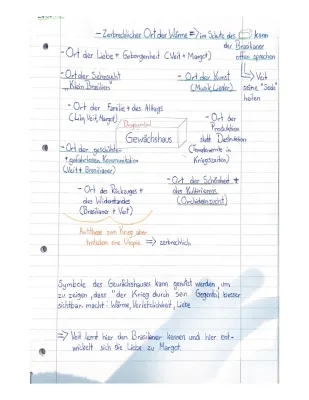 - Zerbrechlicher Ort der Wärme => im Schutz des kann
der Brasilianer
offen sprechen
- Ort der Liebe + Geborgenheit (Veit + Margot)
↳ Veit
seine "Seele"
heilen
- Ort der Sehnsucht
"Klein Brasilien"
- Ort der Kunst
(Musik, Lieder)
- Ort der Familie + des Alltags
(Lilli, Veit, Margot)
Dingsymbol
Gewächshaus
- Ort der
Produktion
statt Destruktion
(Tomatenernte in
Kriegszeiten)
- Ort der geschützten
+ gefahrlosen Kommunikation
(Veit + Brasilianer)
- Ort der Schönheit +
des Kultivierens
(Orchideenzucht)
- Ort des Rückzuges +
des Widerstandes
(Brasilianer + Veit)
Antithese zum Krieg aber
trotzdem eine Utopie => zerbrechlich
Symbole des Gewächshauses kann genutzt werden, um
zu zeigen, dass "der Krieg durch sein Gegenteil besser
sichtbar macht: Wärme, Verletzlichkeit, Liebe
=> Veit lernt hier den Brasilianer kennen und hier ent-
wickelt sich die Liebe zu Margot.